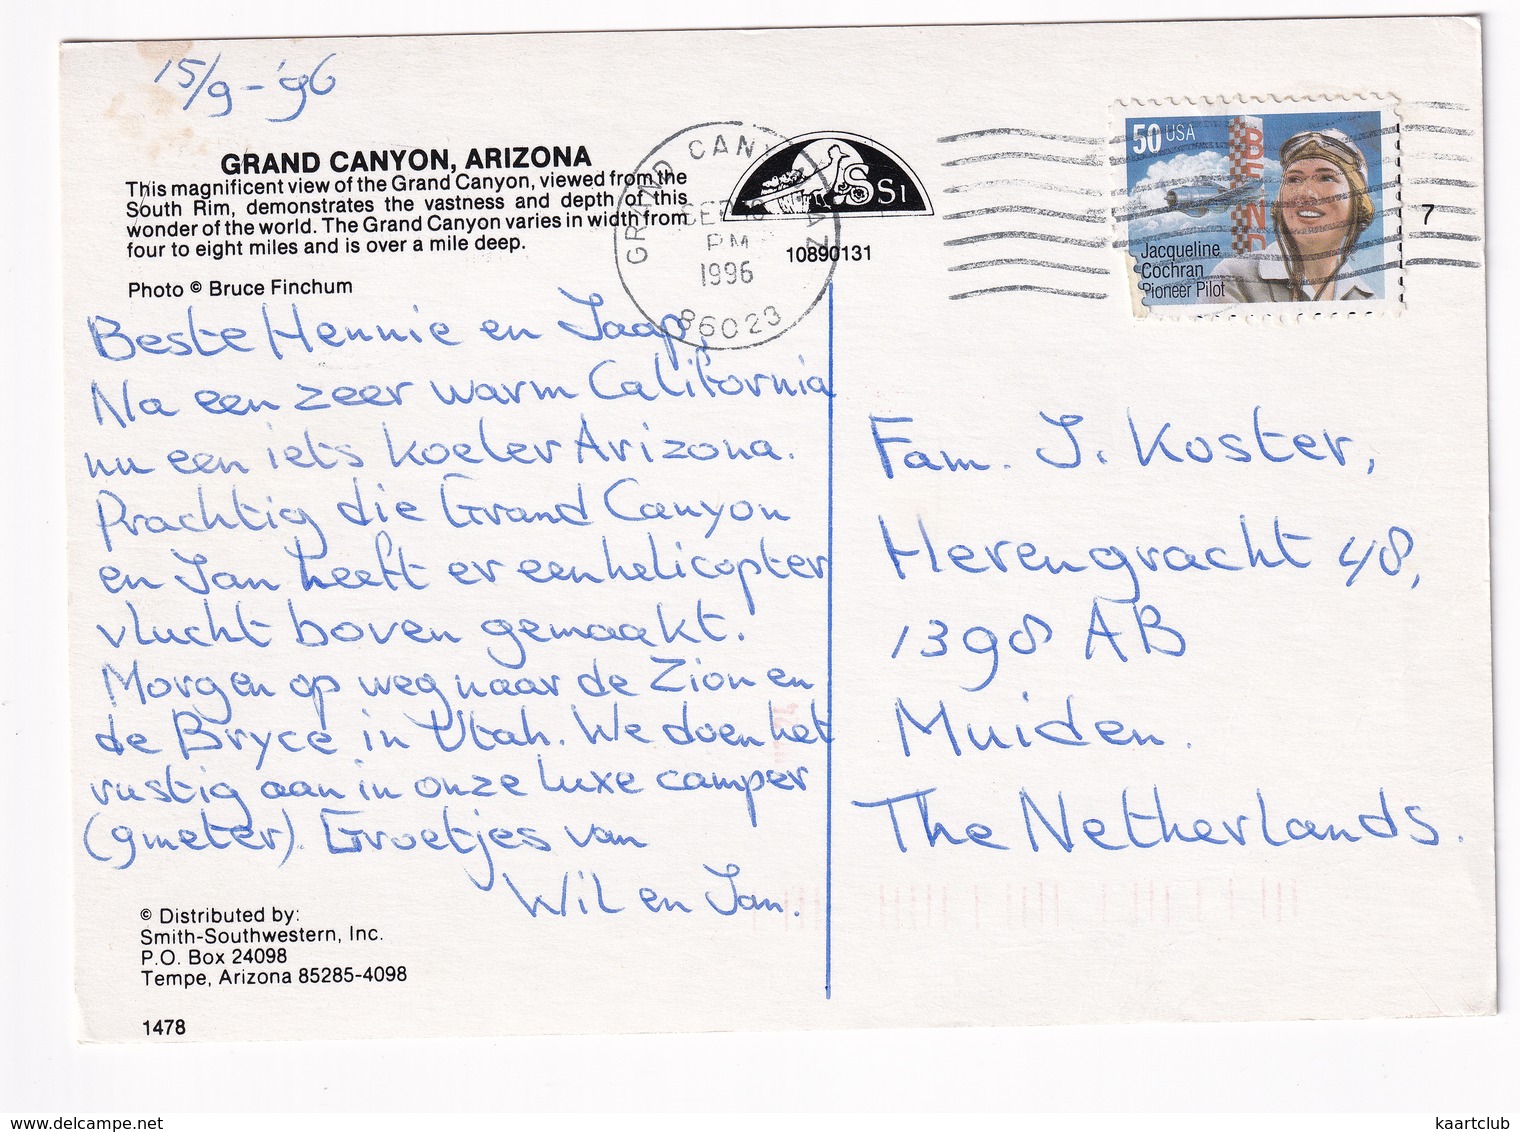 15/9-'96
GRAND CANYON, ARIZONA
This magnificent view of the Grand Canyon, viewed from the
South Rim, demonstrates the vastness and depth of this
wonder of the world. The Grand Canyon varies in width from
four to eight miles and is over a mile deep.
Photo © Bruce Finchum
GRAND CANYON AZ
SEP
PM
1996
86023
SSI
10890131
50 USA
BEND
Jacqueline
Cochran
Pioneer Pilot
7
Beste Hennie en Jaap,
Na een zeer warm California
nu een iets koeler Arizona.
Prachtig die Grand Canyon
en Jan heeft er een helicopter
vlucht boven gemaakt.
Morgen op weg naar de Zion en
de Bryce in Utah. We doen het
rustig aan in onze luxe camper
(9 meter). Groetjes van
Wil en Jan.
Fam. J. Koster,
Herengracht 48,
1398 AB
Muiden.
The Netherlands.
© Distributed by:
Smith-Southwestern, Inc.
P.O. Box 24098
Tempe, Arizona 85285-4098
1478
delcampe.net
kaartclub